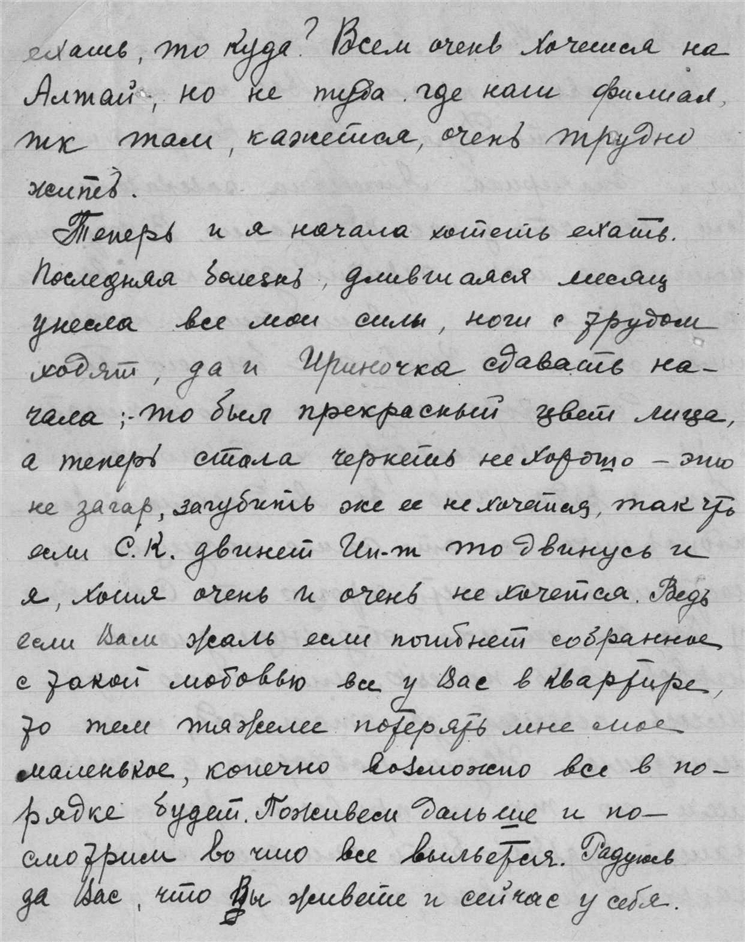 ехать, то куда? Всем очень хочется на
Алтай, но не туда где наш филиал,
тк там, кажется, очень трудно
жить.
Теперь и я начала хотеть ехать.
Последняя болезнь, длившаяся месяц
унесла все мои силы, ноги с трудом
ходят, да и Ириночка сдавать на-
чала;- то был прекрасный цвет лица,
а теперь стала чернеть нехорошо - это
не загар, загубить же ее не хочется, так что
если С.К. двинет Ин-т то двинусь и
я, хотя очень и очень не хочется. Ведь
если Вам жаль если погибнет собранное
с такой любовью все у Вас в квартире,
то тем тяжелее потерять мне мое
маленькое, конечно возможно все в по-
рядке будет. Поживем дальше и по-
смотрим во что все выльется. Радуюсь
за Вас, что Вы живете и сейчас у себя.